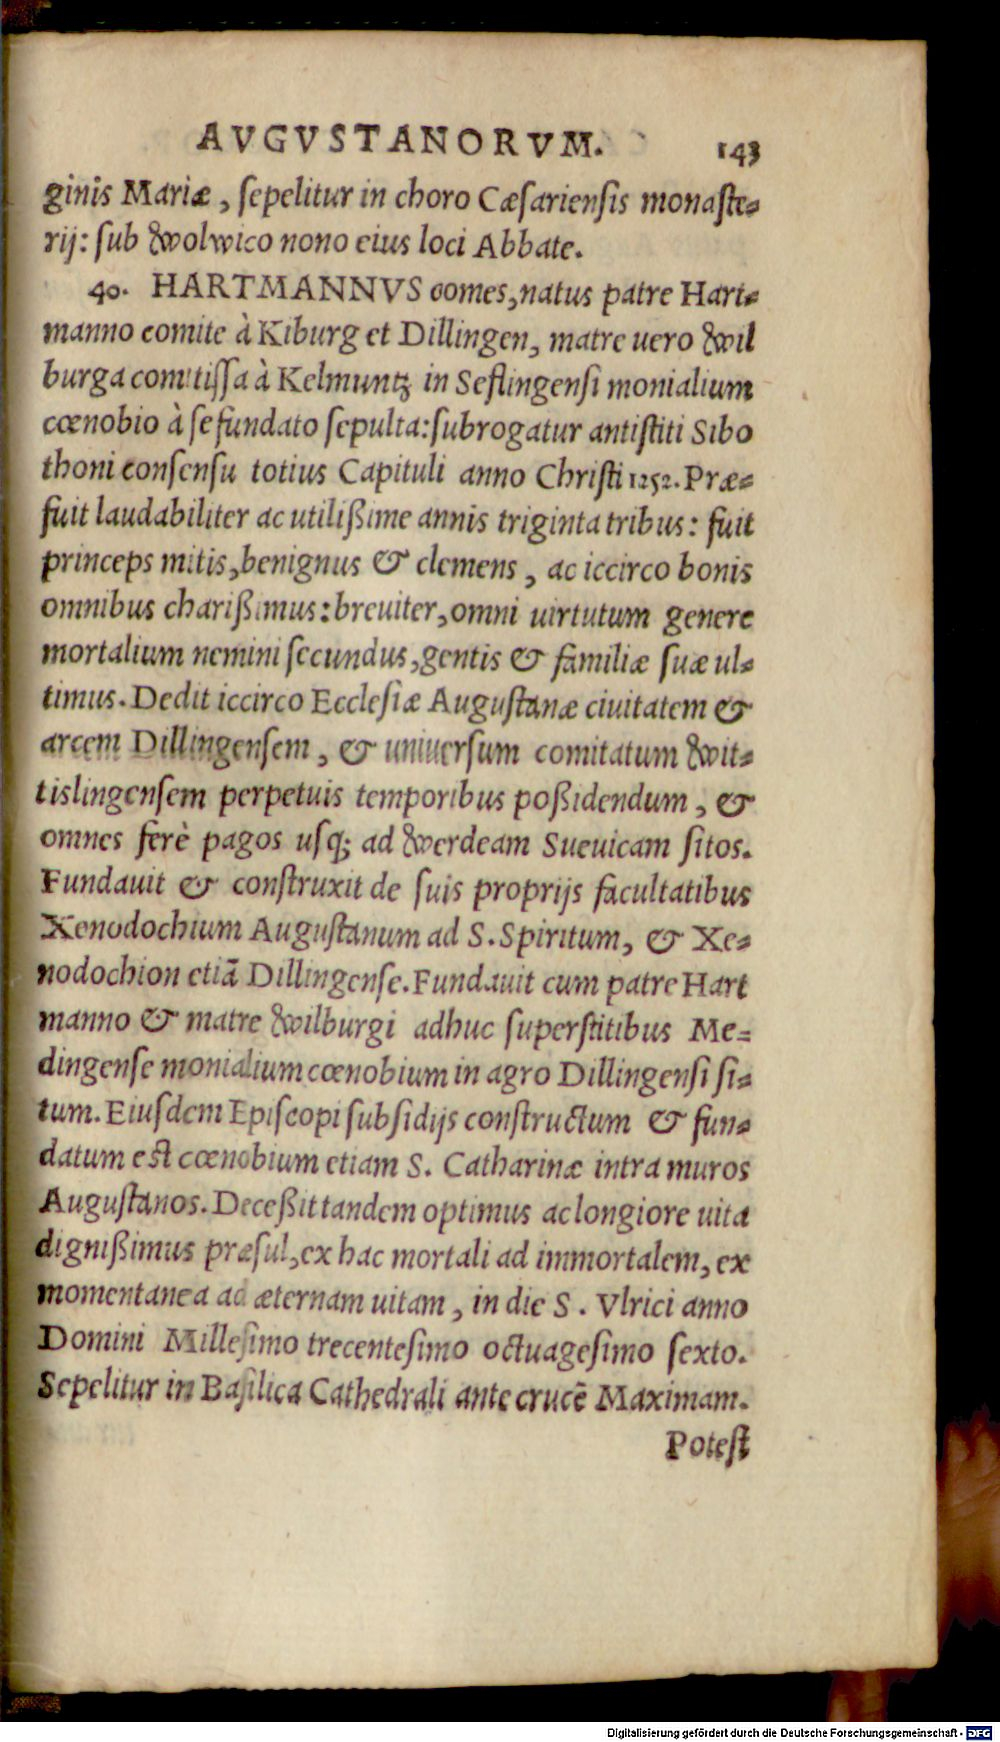 AVGVSTANORVM. 143
ginis Mariæ, ſepelitur in choro Cæſarienſis monaſte=
rij: ſub Wolwico nono eius loci Abbate.
40. HARTMANNVS comes, natus patre Hart=
manno comite à Kiburg et Dillingen, matre uero Wil
burga comitiſſa à Kelmuntz in Seflingenſi monialium
cœnobio à ſe fundato ſepulta: ſubrogatur antiſtiti Sibo
thoni conſenſu totius Capituli anno Chriſti 1252. Præ=
fuit laudabiliter ac utilißime annis triginta tribus: fuit
princeps mitis, benignus & clemens, ac iccirco bonis
omnibus charißimus: breuiter, omni uirtutum genere
mortalium nemini ſecundus, gentis & familiæ ſuæ ul=
timus. Dedit iccirco Eccleſiæ Auguſtanæ ciuitatem &
arcem Dillingenſem, & uniuerſum comitatum Wit=
tislingenſem perpetuis temporibus poßidendum, &
omnes ferè pagos uſq; ad Werdeam Sueuicam ſitos.
Fundauit & conſtruxit de ſuis proprijs facultatibus
Xenodochium Auguſtanum ad S. Spiritum, & Xe=
nodochion etiã Dillingenſe. Fundauit cum patre Hart
manno & matre Wilburgi adhuc ſuperſtitibus Me=
dingenſe monialium cœnobium in agro Dillingenſi ſi=
tum. Eiuſdem Epiſcopi ſubſidijs conſtructum & fun=
datum eſt cœnobium etiam S. Catharinæ intra muros
Auguſtanos. Deceßit tandem optimus ac longiore uita
dignißimus præſul, ex hac mortali ad immortalem, ex
momentanea ad æternam uitam, in die S. Vlrici anno
Domini Milleſimo trecenteſimo octuageſimo ſexto.
Sepelitur in Baſilica Cathedrali ante crucẽ Maximam.
Poteſt
Digitalisierung gefördert durch die Deutsche Forschungsgemeinschaft - DFG